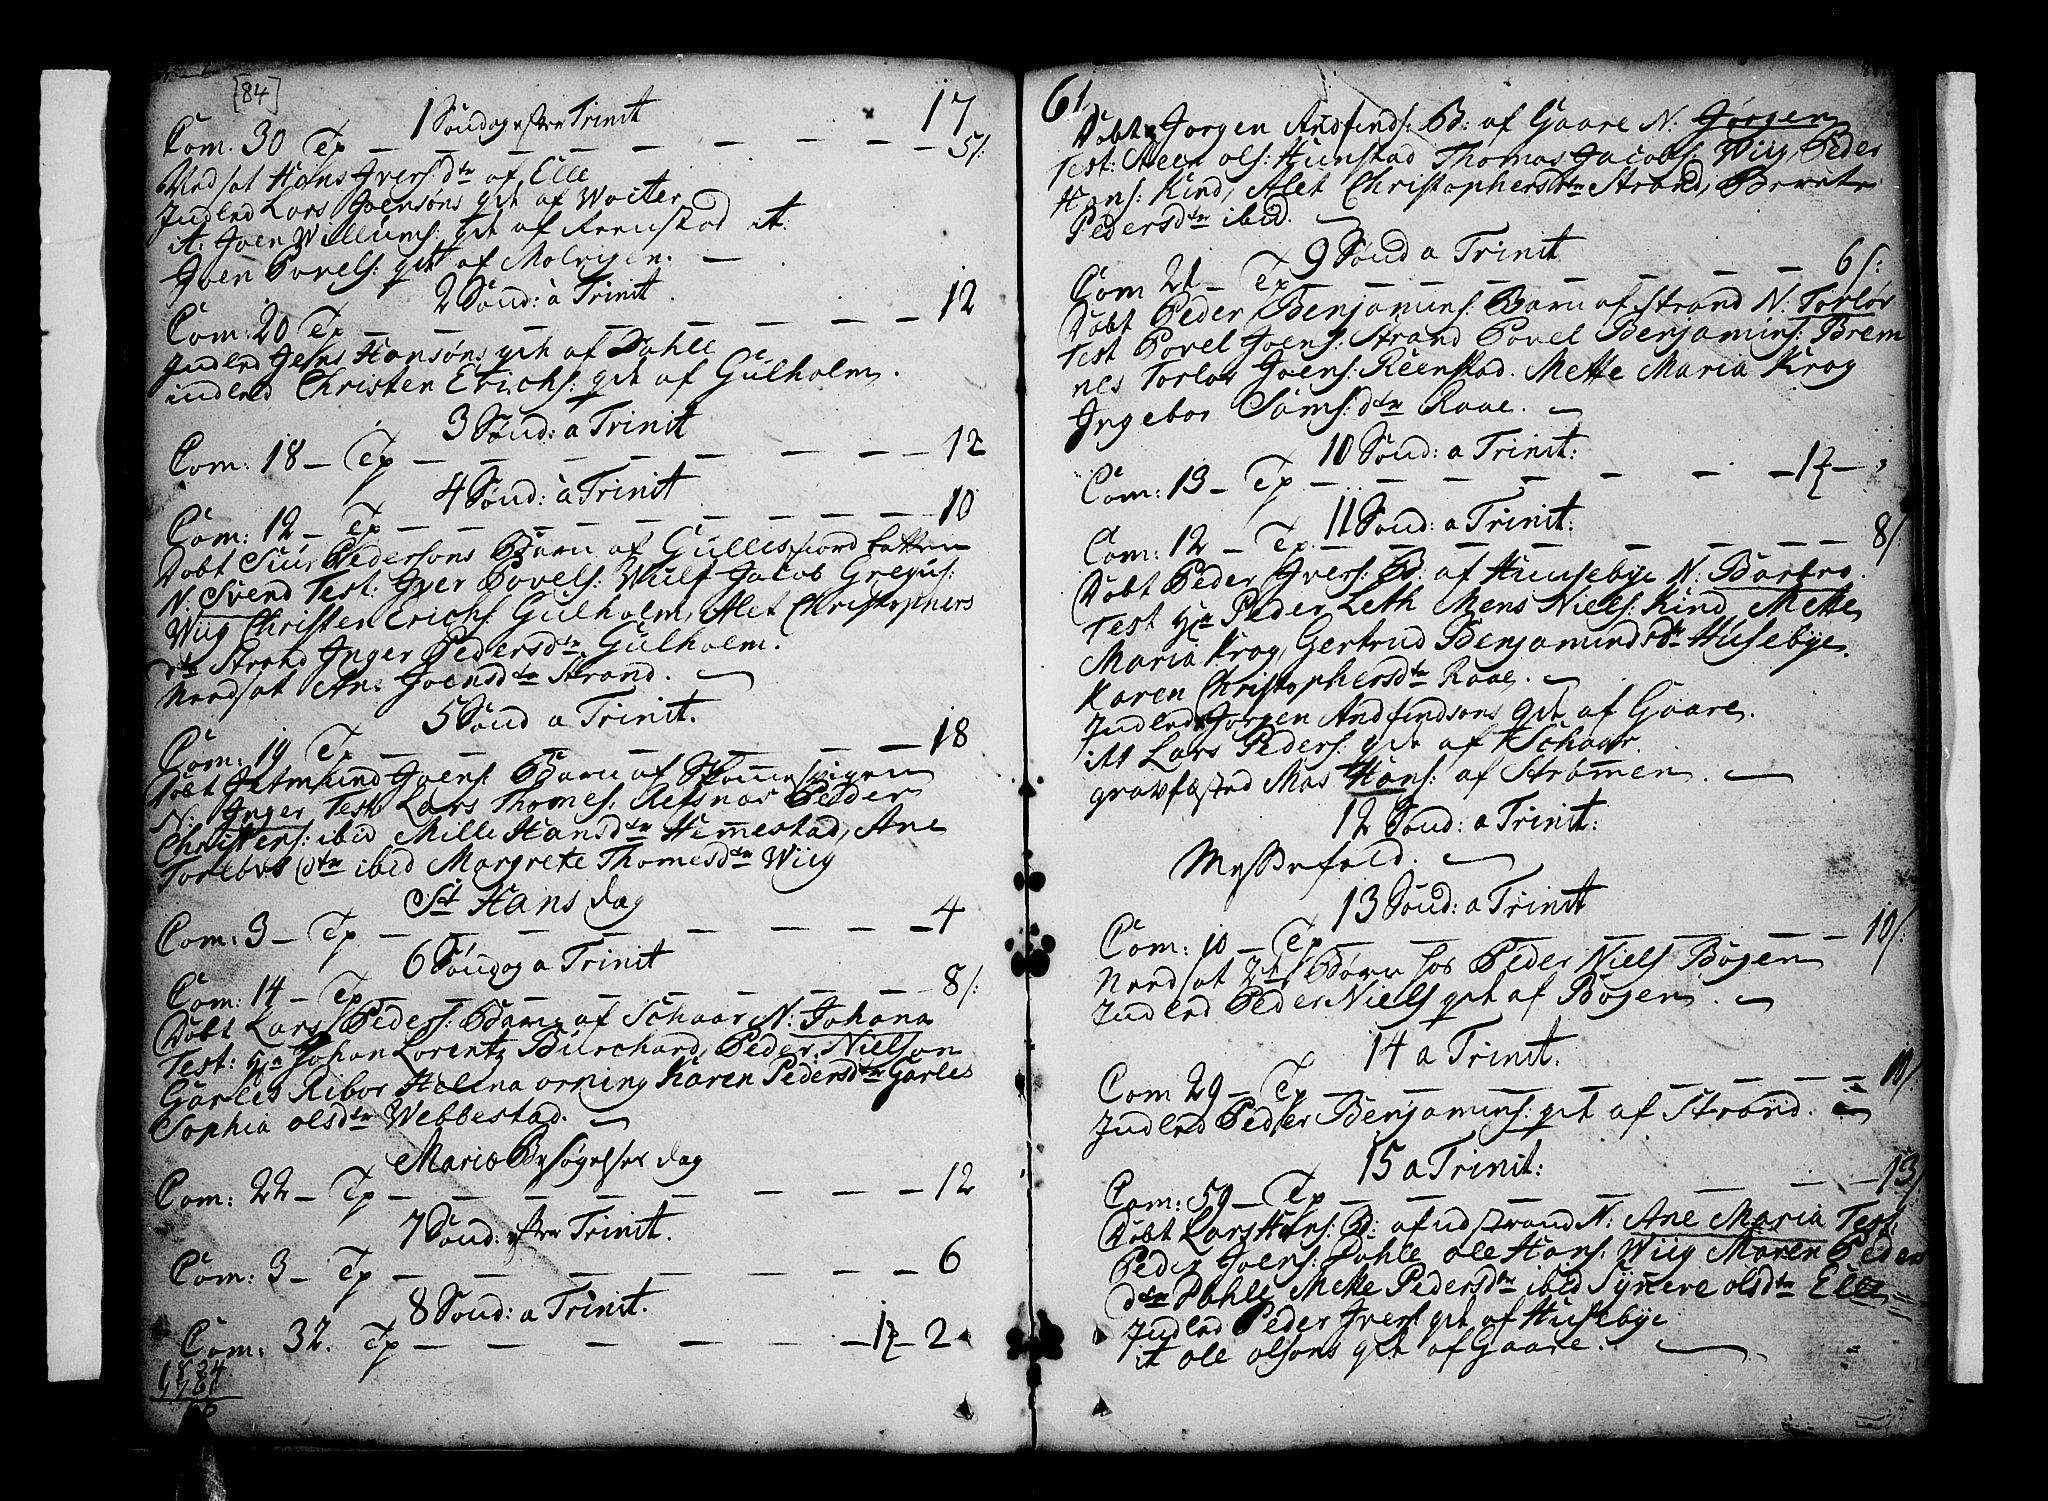 [84]
1 Søndag efter Trinit 17
Com. 30 Tp — — — — — — — — 5/:
Nedsat Hans Ivers: dtr af Elle
Indled Lars Joensøns qvt af Woiter
it: Joen Willums: qvt af Reenstad it:
Joen Povels: qvt af Molvigen. —
2 Sønd: à Trinit
Com: 20 Tp — — — — — — — — 12
Indled Jens Hansøns qvt af Dahle
indled Christen Erichs: qvt af Gulholm.
3 Sønd: a Trinit
Com: 18 — Tp — — — — — — — — 12
4 Sønd: à Trinit
Com: 12 — Tp — — — — — — — — 10
Døbt Siur Pedersøns Barn af Gullesfiord batten
N. Svend Test: Iver Povels: Wulf Jacob Gregus:
Wiig Christen Erichs: Gulholm, Alet Christophers
dtr Strand Inger Pedersdtr Gulholm.
Nedsat Ane Joensdtr Strand.
5 Sønd a Trinit.
Com: 19 Tp — — — — — — — — 18
Døbt Jetmund Joens: Barn af
N: Inger Test: Lars Thomes: Refsnæs Peder
Christens: ibid Mille Hansdtr Hemmestad, Ane
dtr ibid Margrete Thomesdtr Wiig
St Hans dag
Com: 3 — Tp — — — — — — — — 4
6 Søndag a Trinit
Com: 14 — Tp — — — — — — — — 8/:
Døbt Lars Peders: Barn af Schaar N: Johana
Test: Hr Johan Lorentz Burchard, Peder Nielson
Garles Ribor Helena orning Karen Pedersdtr Garles
Sophia olsdtr Webbestad.
Mariæ Besøgelses dag
Com: 22 — Tp — — — — — — — — 12
7 Sønd: efter Trinit.
Com: 3 — Tp — — — — — — — — 6
8 Sønd: a Trinit.
Com: 32. Tp — — — — — — — 1z — 2
61
Døbt Jørgen Andfinds: B: af Gaare N: Jørgen
Test: Steen ols: Hunstad Thomas Jacobs: Wiig, Peder
Hans: Kind, Alet Christophersdtr Strand, Berete
Pedersdtr ibid.
9 Sønd a Trinit
Com 21 — Tp — — — — — — — — 6/:
Døbt Peder Benjamins: Barn af Strand N: Torlør
Test Povel Joens: Strand Povel Benjamins: Brem
nes Torlør Joens: Reenstad. Mette Maria Krog
Ingebor Sams: dtr Raae.
10 Sønd: a Trinit:
Com: 13 — Tp — — — — — — — — 1z —
11 Sønd: a Trinit:
Com: 12 — Tp — — — — — — — — 8/:
Døbt Peder Ivers: B: af Huusebye N: Bartro.
Test Hr Peder Leth Mens Niels: Kind, Mette
Maria Krog, Gertrud Benjamindsdtr Husebye.
Karen Christophersdtr Raae.
Indled Jørgen Andfindsøns qvt af Gaare.
it Lars Peders: qvt af Schaar.
gravfæsted Mas Hans: af Strømmen.
12 Sønd: a Trinit:
Messefald.
13 Sønd: a Trinit
Com: 10 — Tp — — — — — — — — 10/:
Nedsat 2de Børn hos Peder Niels Bogen
Indled Peder Niels qvt af Bogen.
14 a Trinit.
Com 29 — Tp — — — — — — — — 10/:
Indled Peder Benjamins: qvt af Strand.
15 a Trinit:
Com: 59 — Tp — — — — — — — — 13/:
Døbt Lars Hans: B: af udstrand N: Ane Maria Test:
Peder Joens: Dahle ole Hans: Wiig Maren Peder
dtr Dahle Mette Pedersdtr ibid Synneve olsdtr Elle
Indled Peder Ivers: qvt af Husebye
it ole olsøns qvt af Gaare.